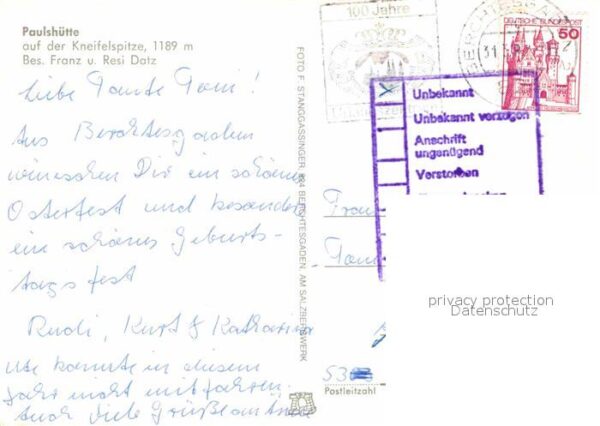 Paulshütte
auf der Kneifelspitze, 1189 m
Bes. Franz u. Resi Datz
Liebe Tante Toni!
Aus Berchtesgaden
wünschen Dir ein schönes
Osterfest und besonders
ein schönes Geburts-
tagsfest
Rudi, Kurt & Katharina
Ute konnte in diesem
Jahr nicht mitfahren.
Auch viele Grüße an
FOTO F. STANGGASSINGER, 824 BERCHTESGADEN, AM SALZBERGWERK
100 Jahre
BERCHTESGADEN
DEUTSCHE BUNDESPOST
50
Unbekannt
Unbekannt verzogen
Anschrift
ungenügend
Verstorben
Frau
53
Postleitzahl
privacy protection
Datenschutz